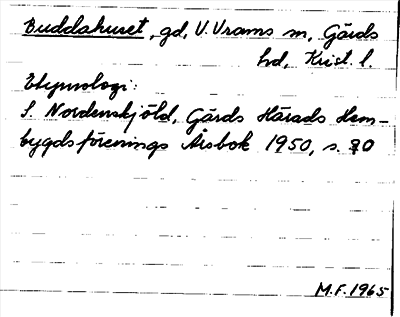 Buddahuset, gd, V. Vrams sn, Gärds
hd, Krist. l.
Etymologi:
S. Nordenskjöld, Gärds Härads Hem-
bygdsförenings Årsbok 1950, s. 80
M.F. 1965